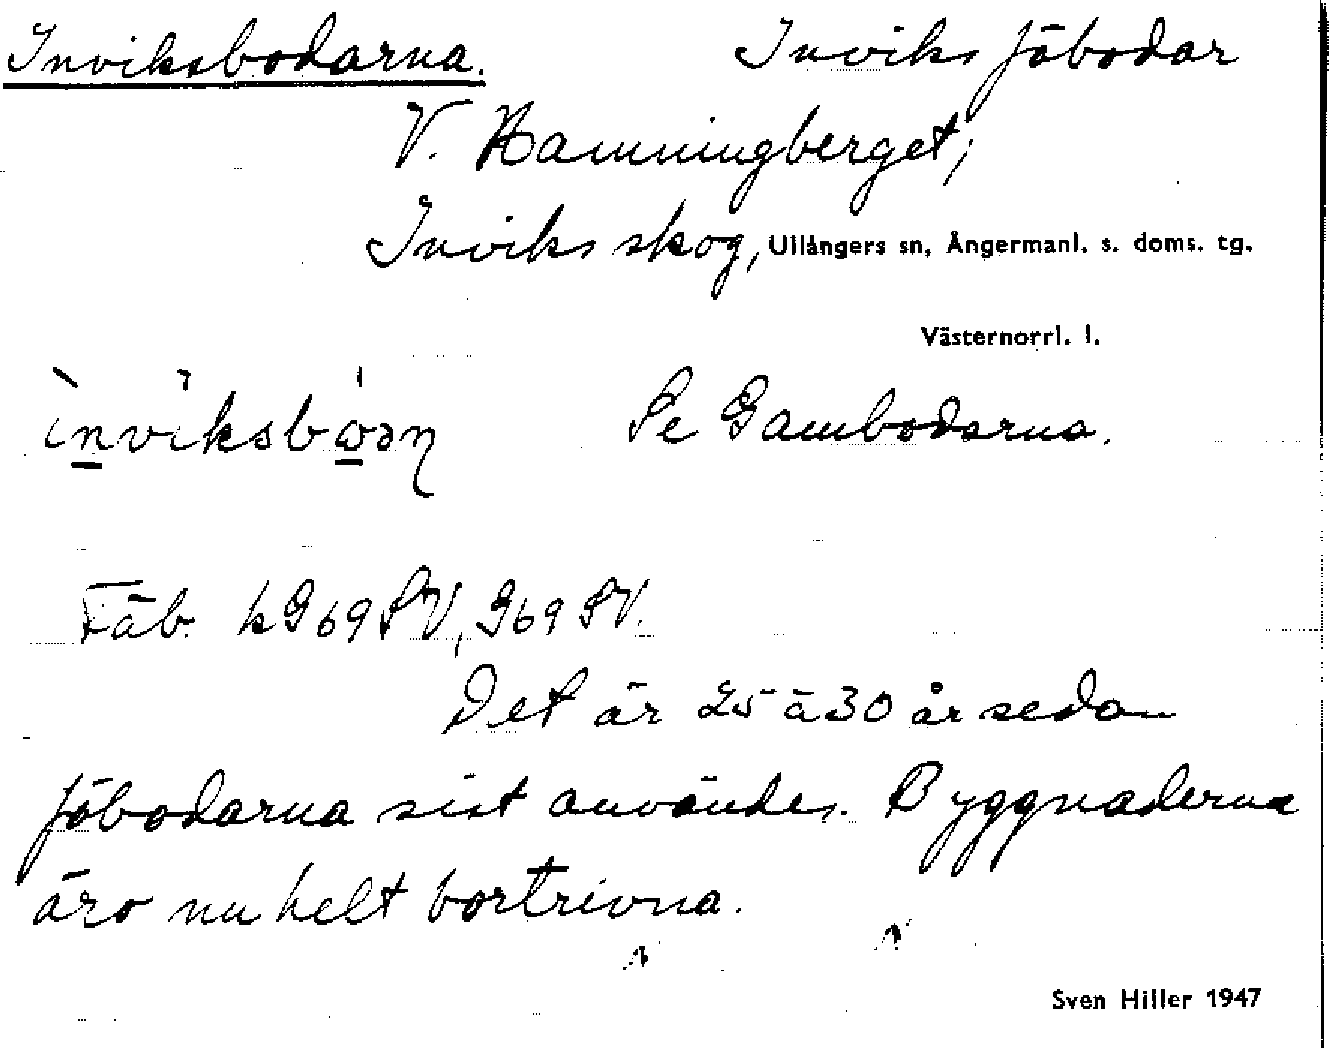 Inviksbodarna. Inviks fäbodar
V. Hamningberget;
Inviks skog, Ullångers sn, Ångermanl. s. doms. tg.
Västernorrl. l.
Se Gambodarna.
Fäb. kG69SV, G69SV.
Det är 25 à 30 år sedan
fäbodarna sist användes. Byggnaderna
äro nu helt bortrivna.
Sven Hiller 1947